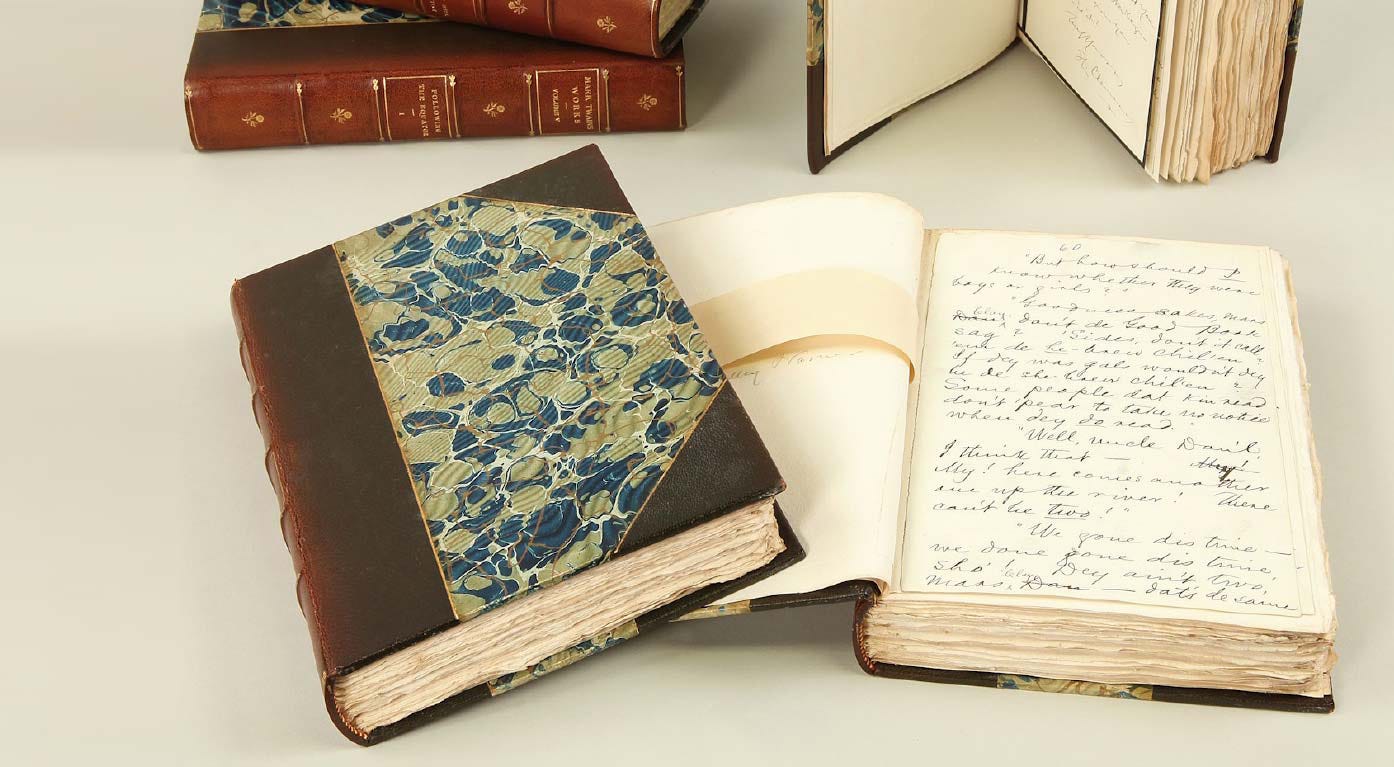 FOLLOWING
THE EQUATOR
I
MARK TWAIN'S
WORKS
VOLUME V
60
"But how should I
know whether they were
boys or girls?"
"Goodness sakes, mars
Clay
Dan, don't de Good Book
say? 'Sides, don't it call
'em de he-brew chil'en?
If dey was gals wouldn't dey
be de she-brew chil'en?
Some people dat kin read
don't 'pear to take no notice
when dey do read."
"Well, uncle Dan'l,
I think that —
My! here comes another
one up the river! There
can't be two!"
"We gone dis time —
we done gone dis time,
sho'! Dey ain't two,
Clay
mars Dan — dat's de same